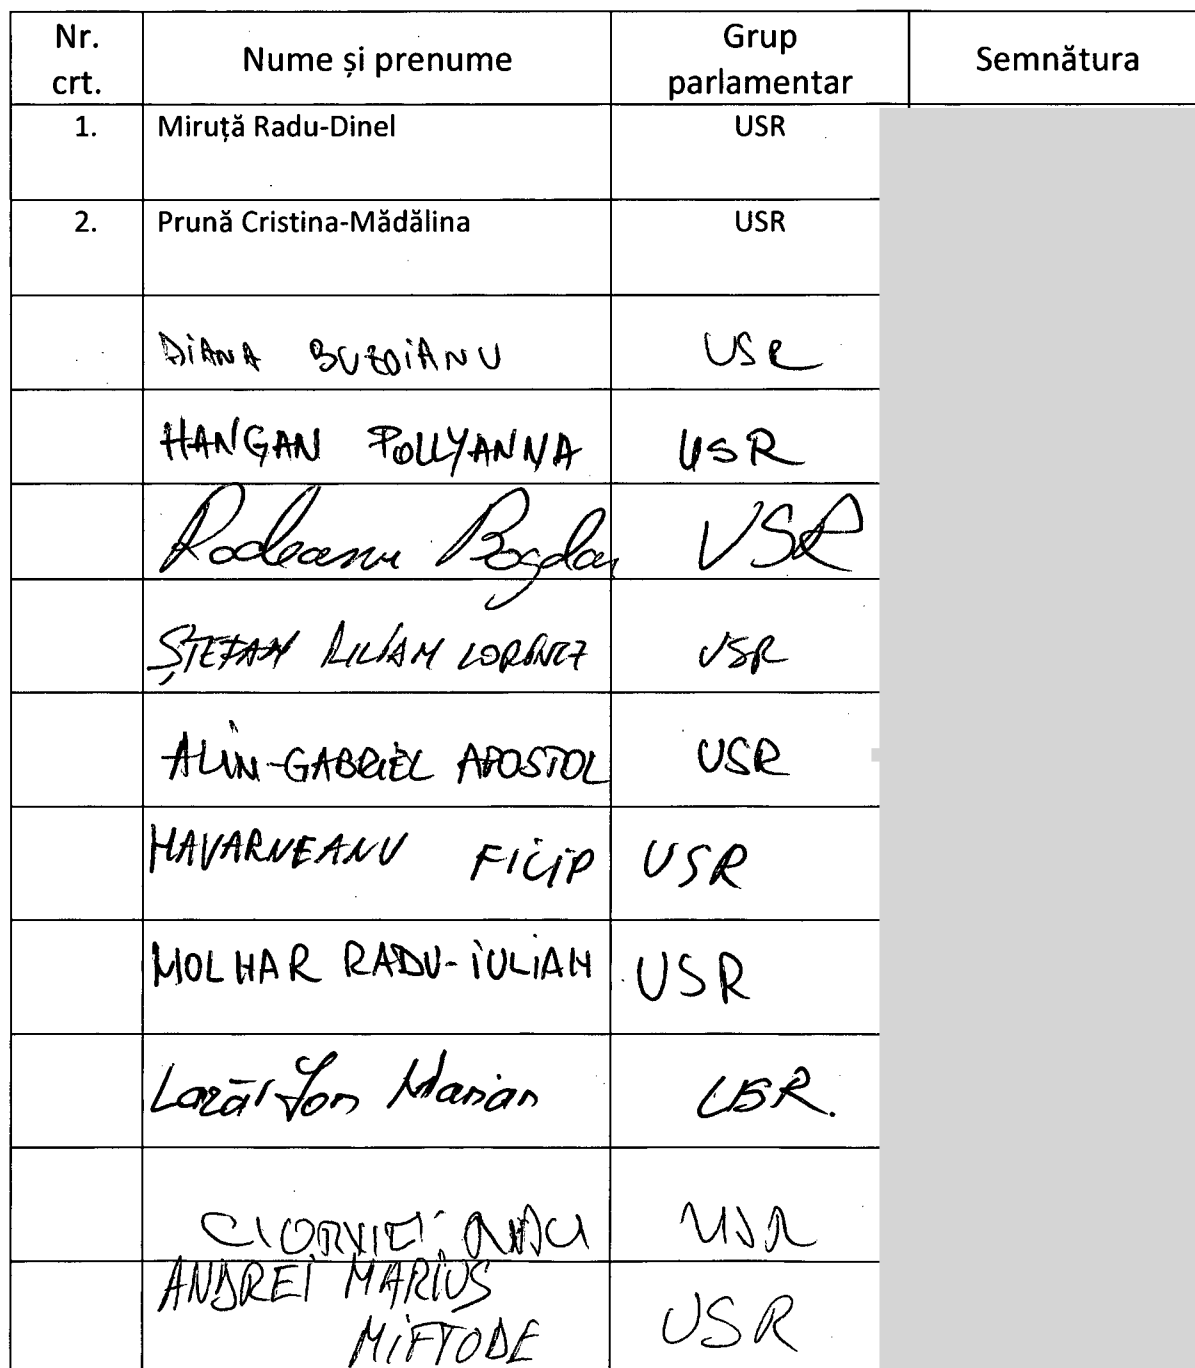 Nr. crt. Nume și prenume Grup parlamentar Semnătura
1. Miruță Radu-Dinel USR
2. Prună Cristina-Mădălina USR
DIANA BUZOIANU USR
HANGAN POLLYANNA USR
Rodeanu Bogdan USR
ȘTEFAN LILIAN LORINCZ USR
ALIN-GABRIEL APOSTOL USR
HAVARNEANU FILIP USR
MOLNAR RADU-IULIAN USR
Lazăr Ion Marian USR.
CIORNEI RADU USR
ANDREI MARIUS
MIFTODE USR